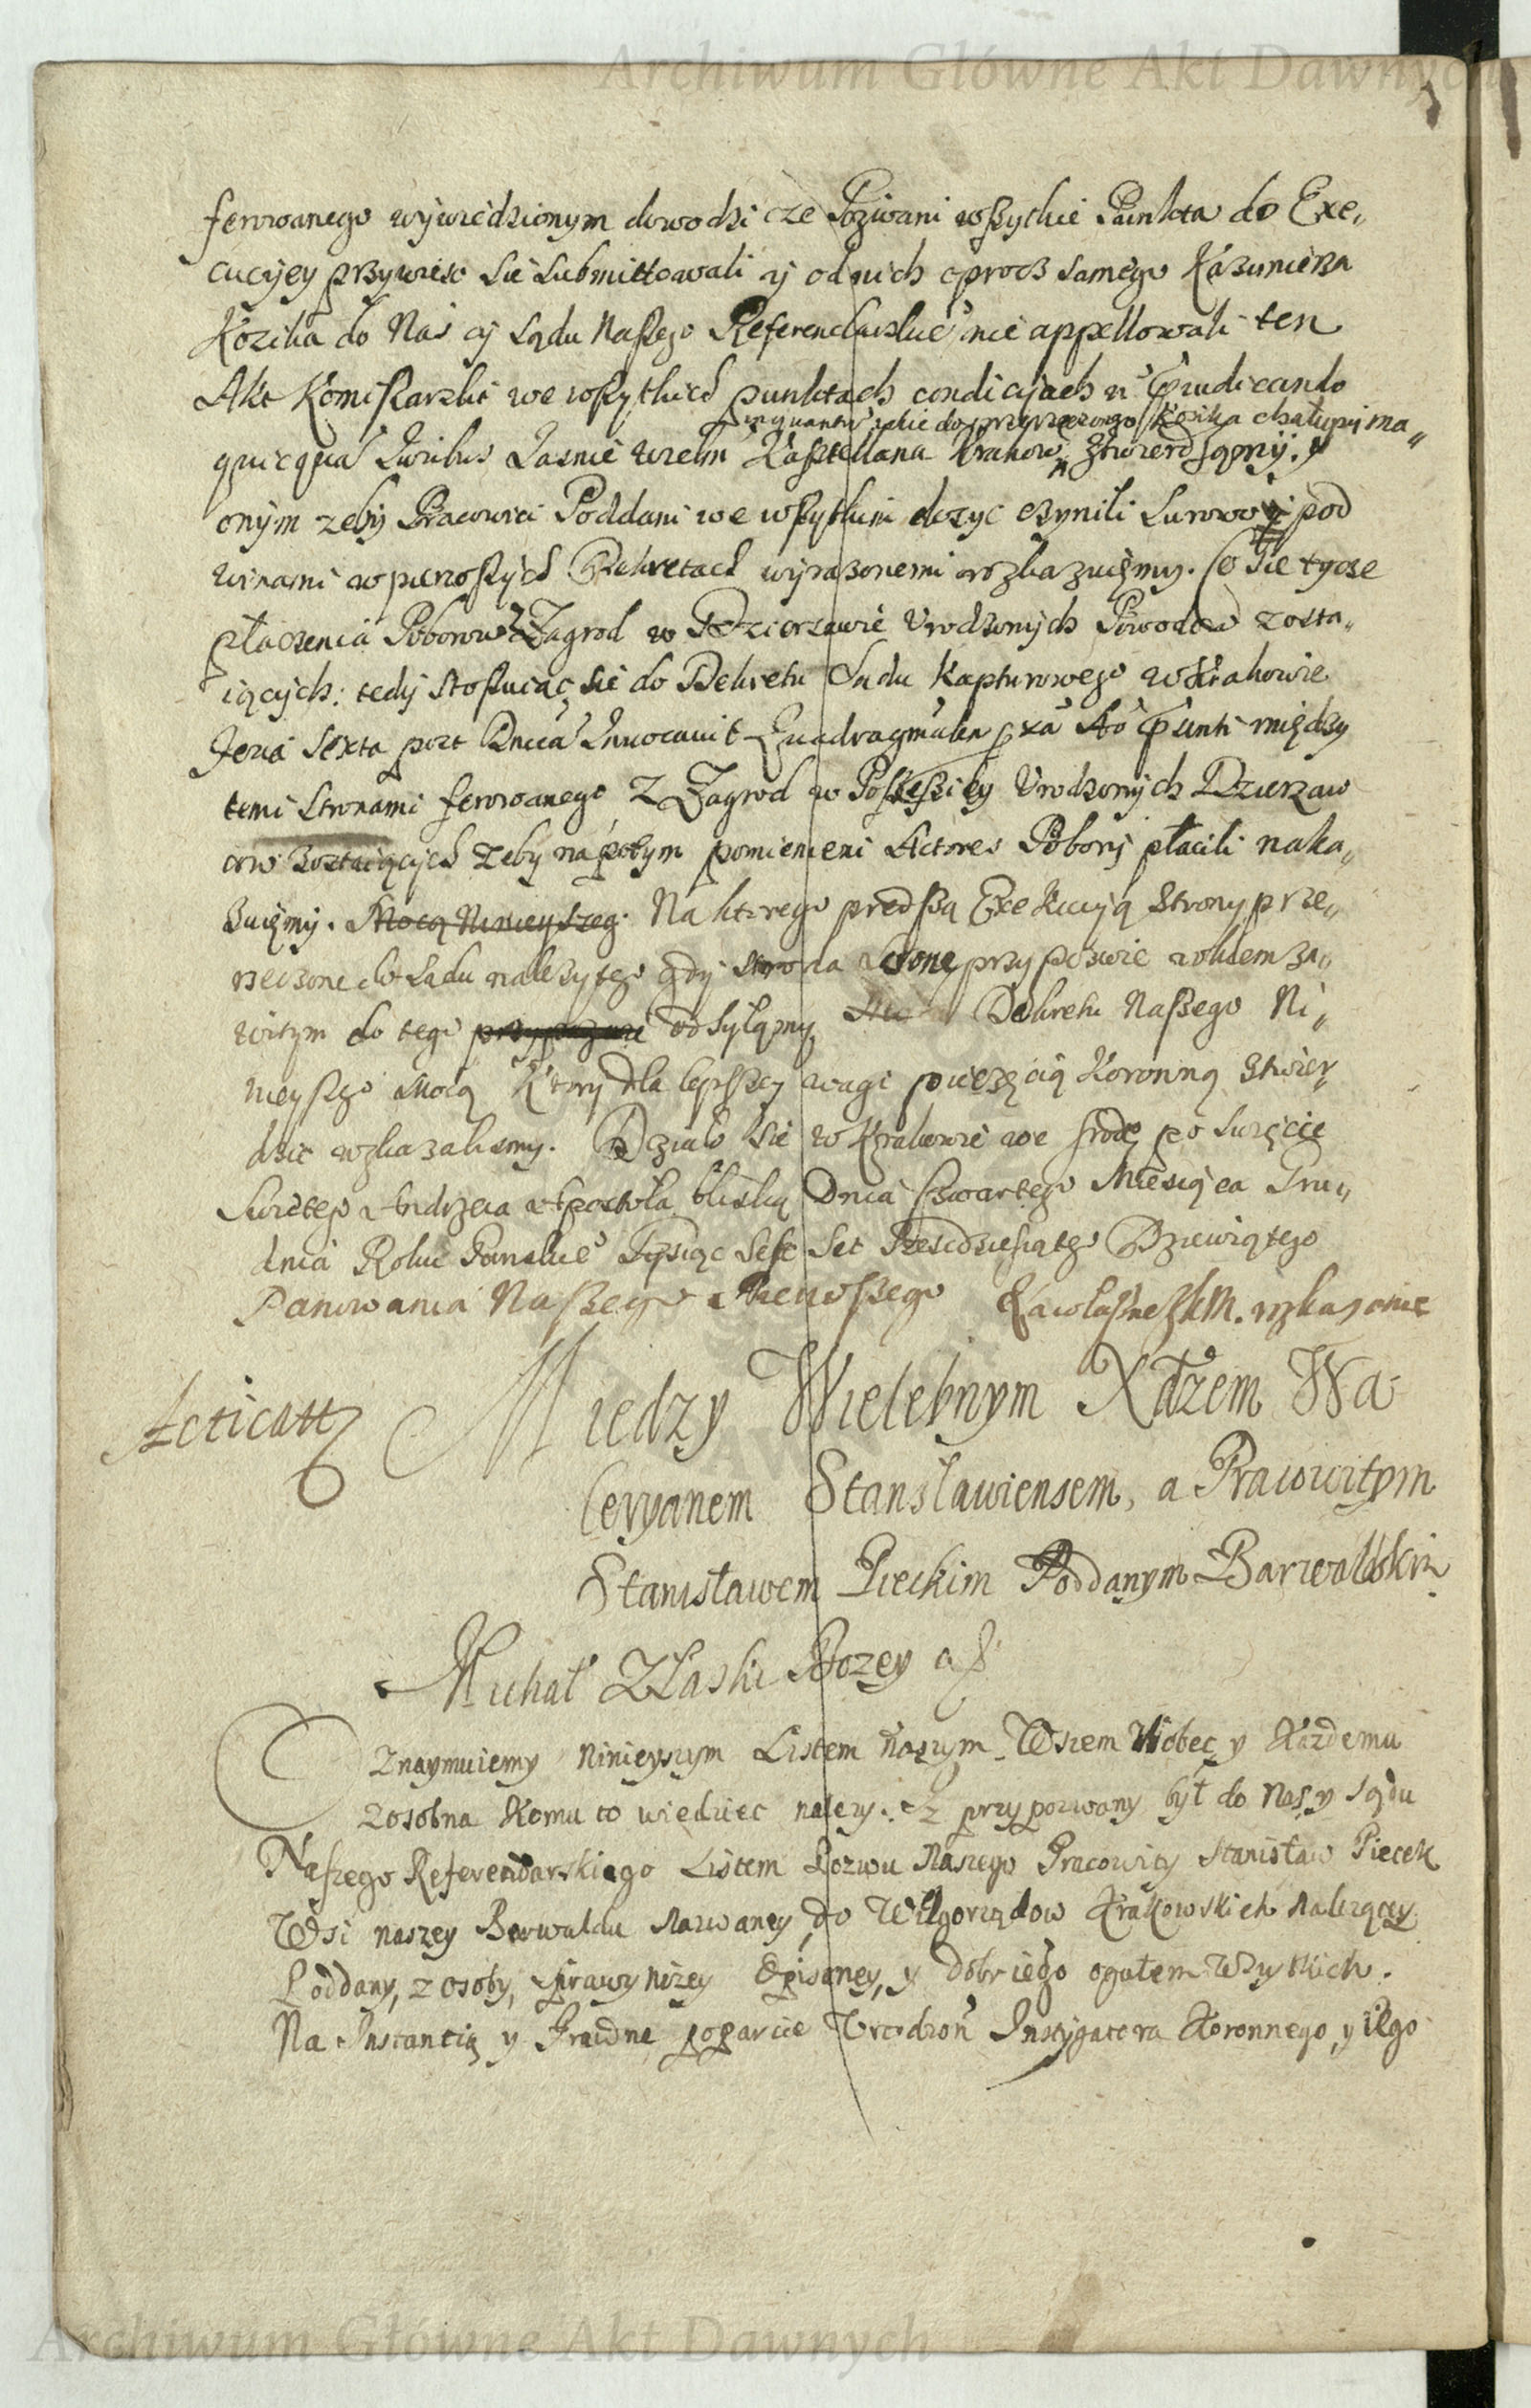 Archiwum Główne Akt Dawnych
ferowanego wywiedzionym dowodzi cze Pozwani wszytkie Punkta do Exe„
cucyjey przywiesc sie submittowali y od nich oprocz samego Kazimierza
Kozika do Nas y Sądu Naszego Referendarskie° nie appellowali ten
Akt Komisarski we wszytkich punktach condicyjach nē p̄iudicando
inquantū jakie do przerzeczonego Kozika chałupy ma„
quicquā Iuribus Jasnie Wielm Kasztellana Krakow„ ztwierdząmy. y
onym zeby Pracowici Poddani we wszytkim dosyc czynili surowo y pod
winami w pierwszych Dekretach wyrazonemi rozkazuięmy. Co sie tycze
płacenia Poborow z Zagrod w Dzierzawie Vrodzonych Powodow zosta„
iących: tedy stosuiąc sie do Dekretu Sądu Kapturowego w Krakowie
Feria Sexta post Dnicā Invocavit Quadragmālem p̄xā Ao p̄nti między
temi Stronami ferowanego Z Zagrod w Possessiey Vrodzonych Dzierzaw
cow zostaiących zeby na potym pomienieni Actores Pobory płacili naka„
zuięmy. Mocą Ninieyszeg. Na ktorego predszą Exekucyją Strony prze„
rzeczone do Sądu nalezytego gdy strona stronę przypozwie rokiem za„
witym do tego odsyłąmy Dekretu Naszego Ni„
nieyszego Mocą Ktory dla lepszey wagi pieczęcią Koronną stwier„
dzic rozkazalismy. Działo sie w Krakowie we srodę po Swięcie
Swiętego Andrzeia Apostoła bliską Dnia Czwartego Miesiąca Gru„
dnia Roku Panskie° Tysiąc Sesc Set Szescdziesiątego Dziewiątego
Panowania Naszego Pierwszego Za własne JKM. rozkazanie
Acticatt
Miedzy Wielebnym Xdzem Wa-
leryanem Stanslawiensem, a Pracowitym
Stanisławem Pieckim Poddanym Barwaldskim
Michał Z Łaski Bozey &
Oznaymuiemy Ninieyszym Listem Naszym Wszem Wobec y Kazdemu
zosobna Komu to wiedziec nalezy. Iz przypozwany był do Nas y Sądu
Naszego Referendarskiego Listem Pozwu Naszego Pracowity Stanisław Piecek
Wsi naszey Barwaldu Nazwaney do Wielgorządow Krakowskich Nalezącey
Poddany, z osoby, sprawy nizey Opisaney, y dobr iego ogułem Wszytkich.
Na Instantią y Prawne poparcie Vrodzon Instygatora Koronnego, y iego
Archiwum Główne Akt Dawnych